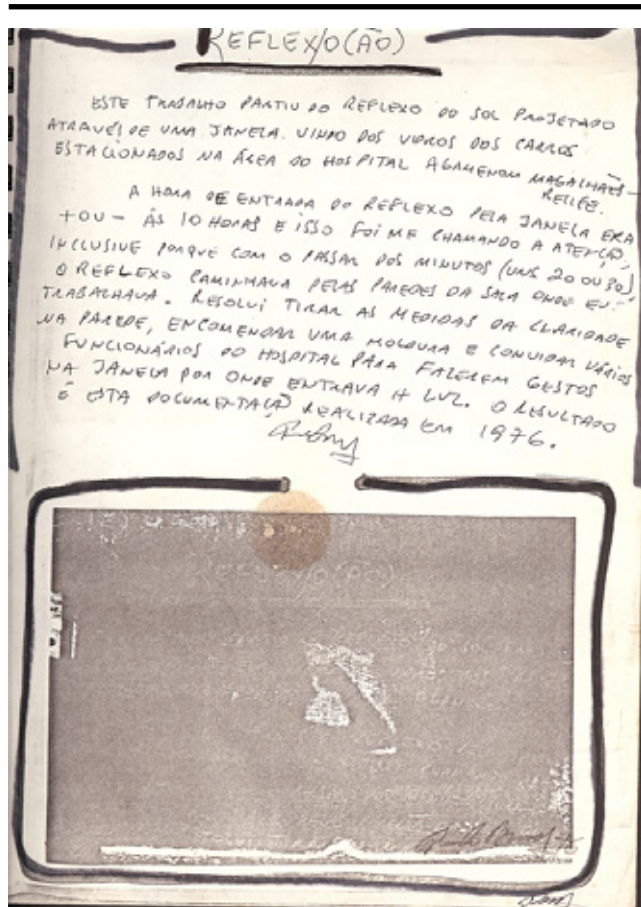 REFLEX/O(ÃO)
ESTE TRABALHO PARTIU DO REFLEXO DO SOL PROJETADO
ATRAVÉS DE UMA JANELA. VINDO DOS VIDROS DOS CARROS
ESTACIONADOS NA ÁREA DO HOSPITAL AGAMENOM MAGALHÃES -
RECIFE.
A HORA DE ENTRADA DO REFLEXO PELA JANELA ERA
+ OU - ÀS 10 HORAS E ISSO FOI ME CHAMANDO A ATENÇÃO,
INCLUSIVE PORQUE COM O PASSAR DOS MINUTOS (UNS 20 OU 30)
O REFLEXO CAMINHAVA PELAS PAREDES DA SALA ONDE EU
TRABALHAVA. RESOLVI TIRAR AS MEDIDAS DA CLARIDADE
NA PAREDE, ENCOMENDAR UMA MOLDURA E CONVIDAR VÁRIOS
FUNCIONÁRIOS DO HOSPITAL PARA FAZEREM GESTOS
NA JANELA POR ONDE ENTRAVA A LUZ. O RESULTADO
É ESTA DOCUMENTAÇÃO REALIZADA EM 1976.
REFLEX/O(ÃO)